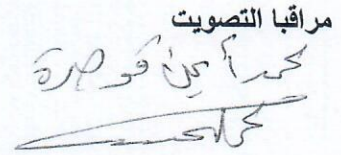 مراقبا التصويت
محمد أيمن قوصرة